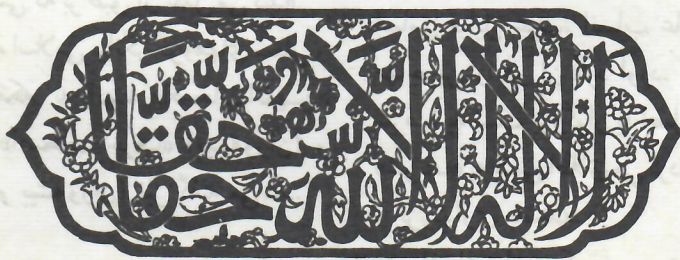 لا إله إلا الله حقا حقا